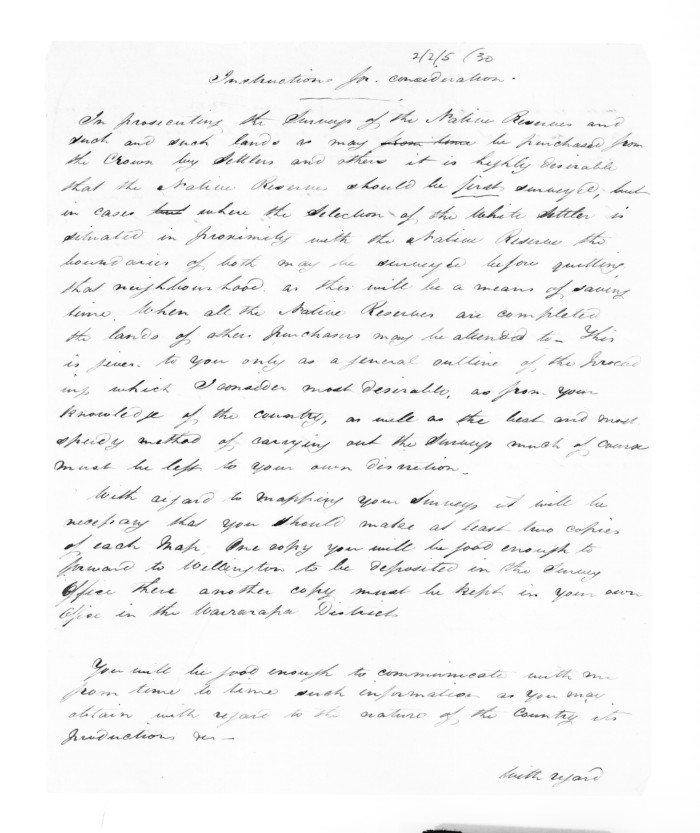 2/2/5 (30
Instructions for consideration.
In prosecuting the Surveys of the Native Reserves and
such and such lands as may from time be purchased from
the Crown by Settlers and others it is highly desirable
that the Native Reserves should be first surveyed, but
in cases that where the Selection of the White Settler is
situated in proximity with the Native Reserve the
boundaries of both may be surveyed before quitting
that neighbourhood as this will be a means of saving
time. When all the Native Reserves are completed
the lands of other purchasers may be attended to – This
is given to you only as a general outline of the proceed
ing which I consider most desirable, as from your
knowledge of the country, as well as the best and most
speedy method of carrying out the Surveys much of course
must be left to your own discretion.
With regard to mapping your Surveys it will be
necessary that you should make at least two copies
of each Map. One copy you will be good enough to
forward to Wellington to be deposited in the Survey
Office there another copy must be kept in your own
Office in the Wairarapa District
You will be good enough to communicate with me
from time to time such information as you may
obtain with regard to the nature of the Country its
productions &c –
With regard